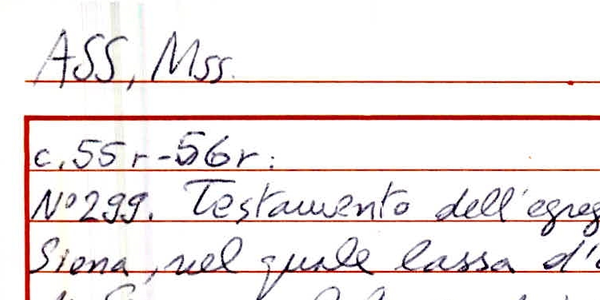 ASS, Mss.
c. 55r-56r:
N° 299. Testamento dell'egreg
Siena, nel quale lassa d'